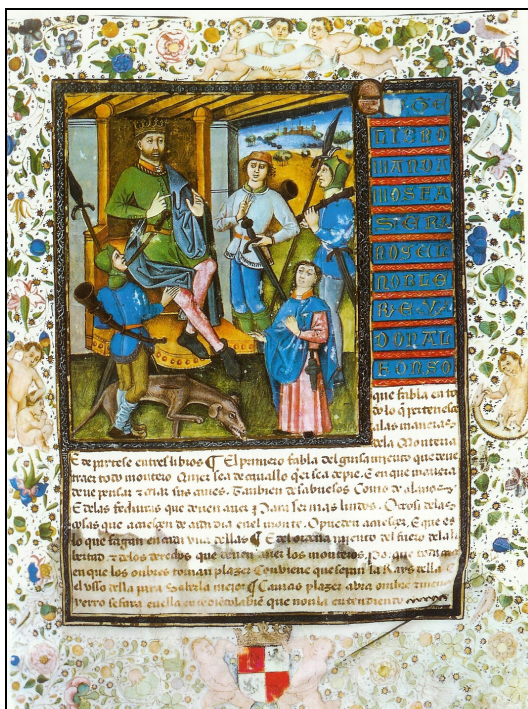 ESTE
LIBRO
MANDA
MOS FA
SER
NOS EL
NOBLE
REY
DON AL
FONSO
que fabla en to
do lo q̃ pertenesçe
a las maneras
dela Monteria
E departese entres libros ¶ El primero fabla del guisamiento que deue
traer todo montero Quier sea de cauallo q̃er sea de pie. E en que manera
deue pensar τ criar sus canes. Tanbien de sabuesos Como de alanos
E delas fechuras que deuen auer Para ser mas lindos. Otrosi delas
cosas que acaesçen de cada dia enel monte. O pueden acaesçer. E que es
lo que fagan en cada vna dellas ¶ E del fuero dela
libertad τ delos derechos que deuen auer los monteros. Por que
en que los onbres toman plazer Conuiene que sepan la
el vsso della para Saberla mejor ¶ Ca mas plazer abra onbre
yerro fara enella que non la entendiendo